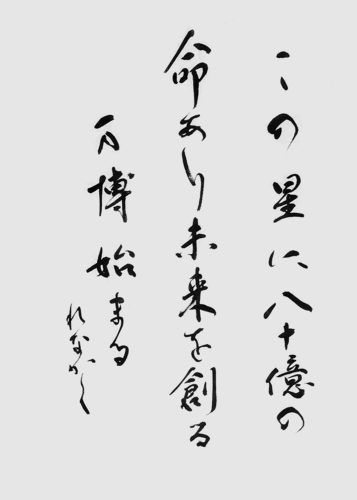 この星に八十億の
命あり未来を創る
万博始まる
れなが〱